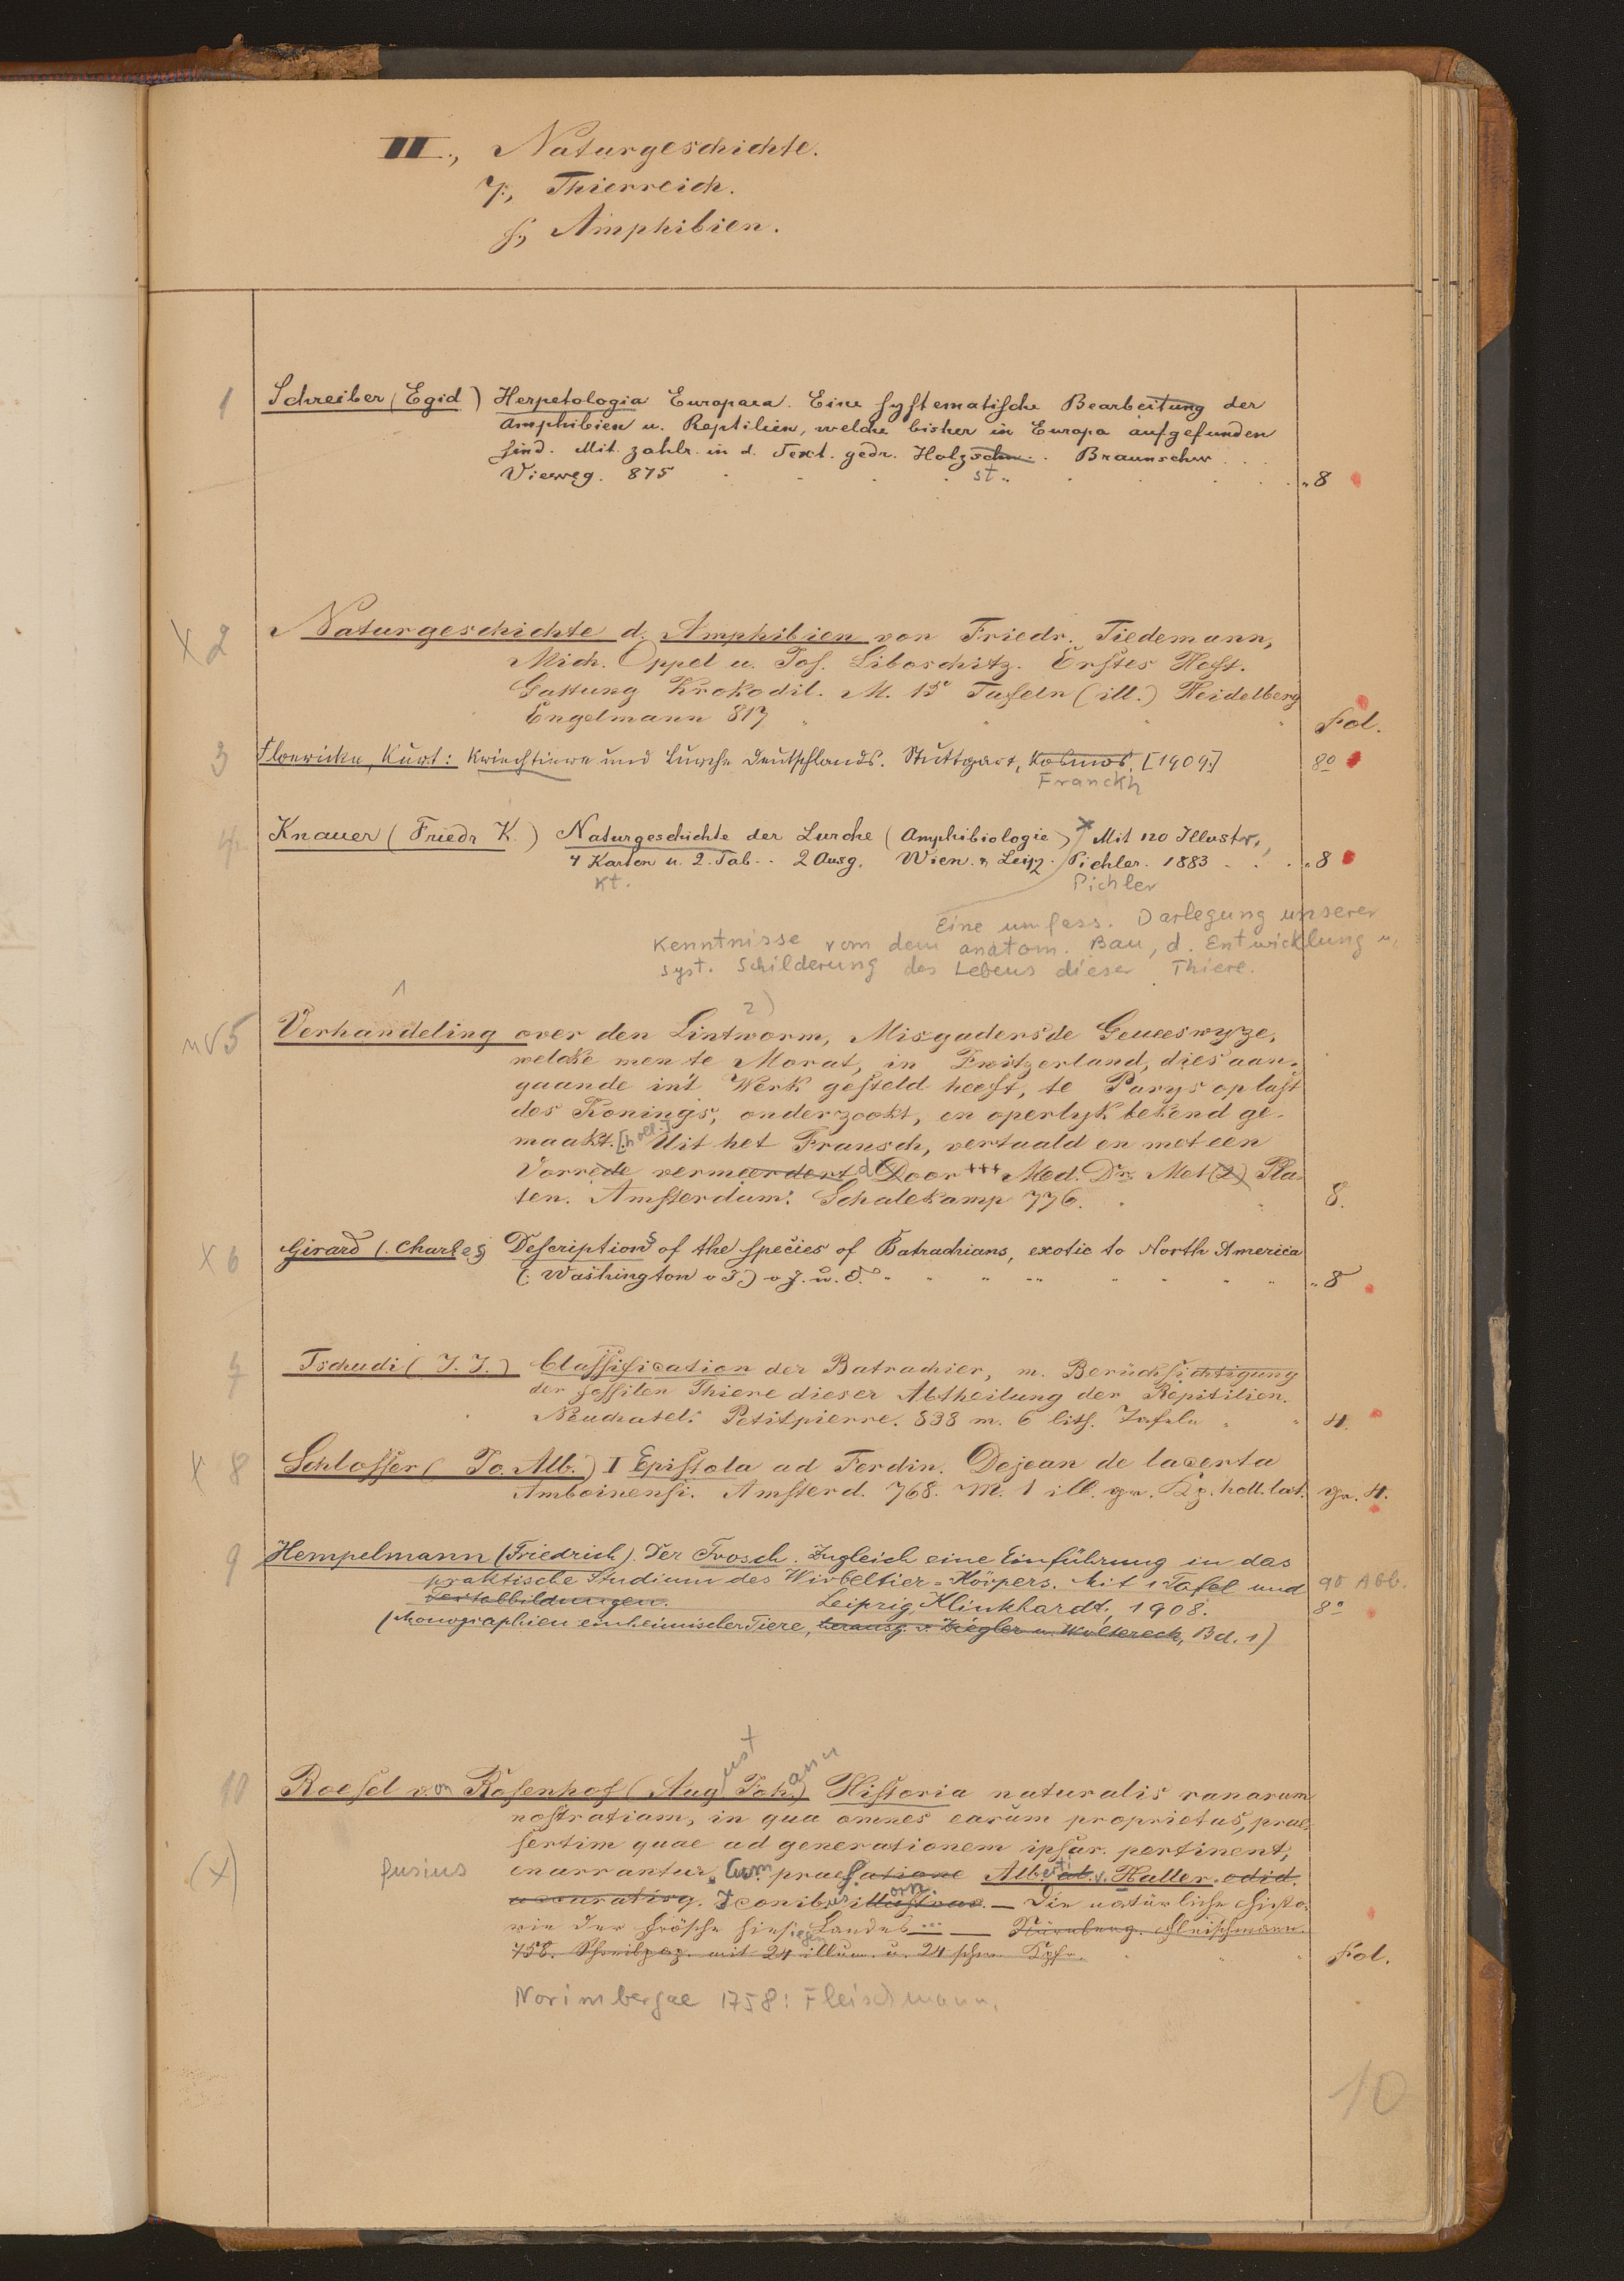 III., Naturgeschichte.
7., Thierreich.
f., Amphibien.
1 Schreiber (Egid) Herpetologia Europaea. Eine systematische Bearbeitung der
Amphibien u. Reptilien, welche bisher in Europa aufgefunden
sind. Mit zahlr. in d. Text. gedr. Holzschn. Braunschw.
Vieweg. 875 st. 8
X 2 Naturgeschichte d. Amphibien von Friedr. Tiedemann,
Mich. Oppel u. Jos. Liboschitz. Erstes Heft.
Gattung Krokodil. M. 15 Tafeln (ill.) Heidelberg
Engelmann 817 Fol.
3 Floericke, Kurt: Kriechtiere und Lurche Deutschlands. Stuttgart, Kosmos. [1909.] 8o
Franckh
4 Knauer (Friedr. K.) Naturgeschichte der Lurche (Amphibiologie) Mit 120 Illustr.,
4 Karten u. 2. Tab. 2 Ausg. Wien. & Leipz. Pichler. 1883 8
Kt. Pichler
Eine umfass. Darlegung unserer
Kenntnisse von dem anatom. Bau, d. Entwicklung u.
syst. Schilderung des Lebens dieser Thiere.
1 2)
5 Verhandeling over den Lintworm, Misgaders de Geneeswyze,
welcke men te Morat, in Zwitzerland, dies aan-
gaande in't Werk gesteld heeft, te Parys op last
des Konings, onderzockt, en operlyk bekend ge-
maakt. [holl.] Uit het Fransch, vertaald en met een
Vorrede vermeerdert Door *** Med. Dr. Met (2) Pla-
ten. Amsterdam: Schalekamp 776. 8.
X 6 Girard (Charles) Descriptions of the species of Batrachians, exotic to North America
(: Washington v J.) v. J. u. O. 8
7 Tschudi (J. J.) Classification der Batrachier, m. Berücksichtigung
der fossilen Thiere dieser Abtheilung der Reptilien.
Neuchatel: Petitpierre. 838 m. 6 lith. Tafeln 4.
X 8 Schlosser (Jo. Alb.) I Epistola ad Ferdin. Dejean de lacerta
Amboinensi. Amsterd. 768. M. 1 ill. gr. Kg. holl. lat. gr. 4.
9 Hempelmann (Friedrich). Der Frosch. Zugleich eine Einführung in das
praktische Studium des Wirbeltier=Körpers. Mit 1 Tafel und 90 Abb.
Textabbildungen. Leipzig, Klinkhardt, 1908. 8o
(Monographien einheimischer Tiere, herausg. v. Ziegler u. Woltereck, Bd. 1)
10 Roesel von Rosenhof (August Johann) Historia naturalis ranarum
nostratiam, in qua omnes earum proprietas, prae-
sertim quae ad generationem ipsar. pertinent,
(X) fusius enarrantur. Cum praefatione Alberti v. Haller. edid.
accuratisq. Iconibus illustrav. — Die natürliche Histo-
rie der Frösche hiesigen Landes ... — Nürnberg. Fleischmann.
758. Schreibpap. mit 24 illum. u. 24 schw. Kpfr. Fol.
Norimbergae 1758: Fleischmann.
10